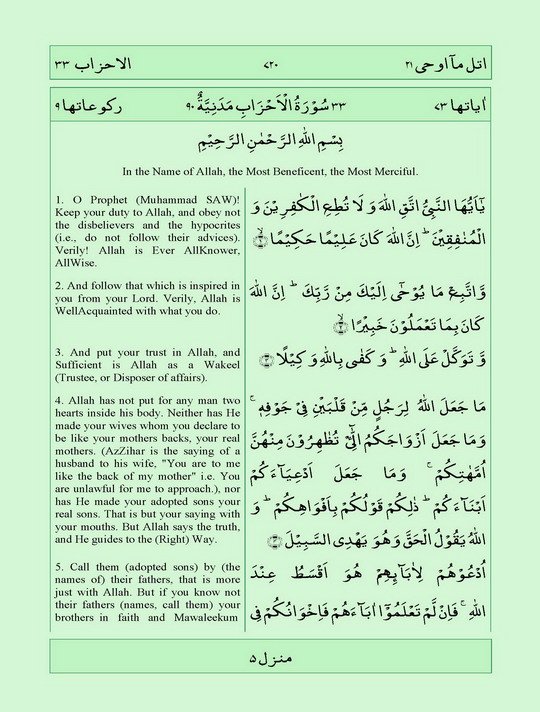 اتل مآ اوحی ۲۱ ۷۲۰ الاحزاب ۳۳
اٰیاتها ۷۳ ۳۳ سُوْرَةُ الْاَحْزَابِ مَدَنِيَّةٌ ۹۰ رکوعاتها ۹
بِسْمِ اللهِ الرَّحْمٰنِ الرَّحِيْمِ
In the Name of Allah, the Most Beneficent, the Most Merciful.
1. O Prophet (Muhammad SAW)!
Keep your duty to Allah, and obey not
the disbelievers and the hypocrites
(i.e., do not follow their advices).
Verily! Allah is Ever AllKnower,
AllWise.
يٰۤاَيُّهَا النَّبِيُّ اتَّقِ اللهَ وَ لَا تُطِعِ الْكٰفِرِيْنَ وَ
الْمُنٰفِقِيْنَ ؕ اِنَّ اللهَ كَانَ عَلِيْمًا حَكِيْمًا
2. And follow that which is inspired in
you from your Lord. Verily, Allah is
WellAcquainted with what you do.
وَّاتَّبِعْ مَا يُوْحٰۤى اِلَيْكَ مِنْ رَّبِّكَ ؕ اِنَّ اللهَ
كَانَ بِمَا تَعْمَلُوْنَ خَبِيْرًا
3. And put your trust in Allah, and
Sufficient is Allah as a Wakeel
(Trustee, or Disposer of affairs).
وَّ تَوَكَّلْ عَلَى اللهِ ؕ وَ كَفٰى بِاللهِ وَكِيْلًا
4. Allah has not put for any man two
hearts inside his body. Neither has He
made your wives whom you declare to
be like your mothers backs, your real
mothers. (AzZihar is the saying of a
husband to his wife, "You are to me
like the back of my mother" i.e. You
are unlawful for me to approach.), nor
has He made your adopted sons your
real sons. That is but your saying with
your mouths. But Allah says the truth,
and He guides to the (Right) Way.
مَا جَعَلَ اللهُ لِرَجُلٍ مِّنْ قَلْبَيْنِ فِيْ جَوْفِهٖ ۚ
وَمَا جَعَلَ اَزْوَاجَكُمُ الّٰٓـِٔيْ تُظٰهِرُوْنَ مِنْهُنَّ
اُمَّهٰتِكُمْ ۚ وَمَا جَعَلَ اَدْعِيَآءَكُمْ
اَبْنَآءَكُمْ ؕ ذٰلِكُمْ قَوْلُكُمْ بِاَفْوَاهِكُمْ ؕ وَ
اللهُ يَقُوْلُ الْحَقَّ وَهُوَ يَهْدِى السَّبِيْلَ
5. Call them (adopted sons) by (the
names of) their fathers, that is more
just with Allah. But if you know not
their fathers (names, call them) your
brothers in faith and Mawaleekum
اُدْعُوْهُمْ لِاٰبَآىِٕهِمْ هُوَ اَقْسَطُ عِنْدَ
اللهِ ۚ فَاِنْ لَّمْ تَعْلَمُوْۤا اٰبَآءَهُمْ فَاِخْوَانُكُمْ فِى
منزل ۵